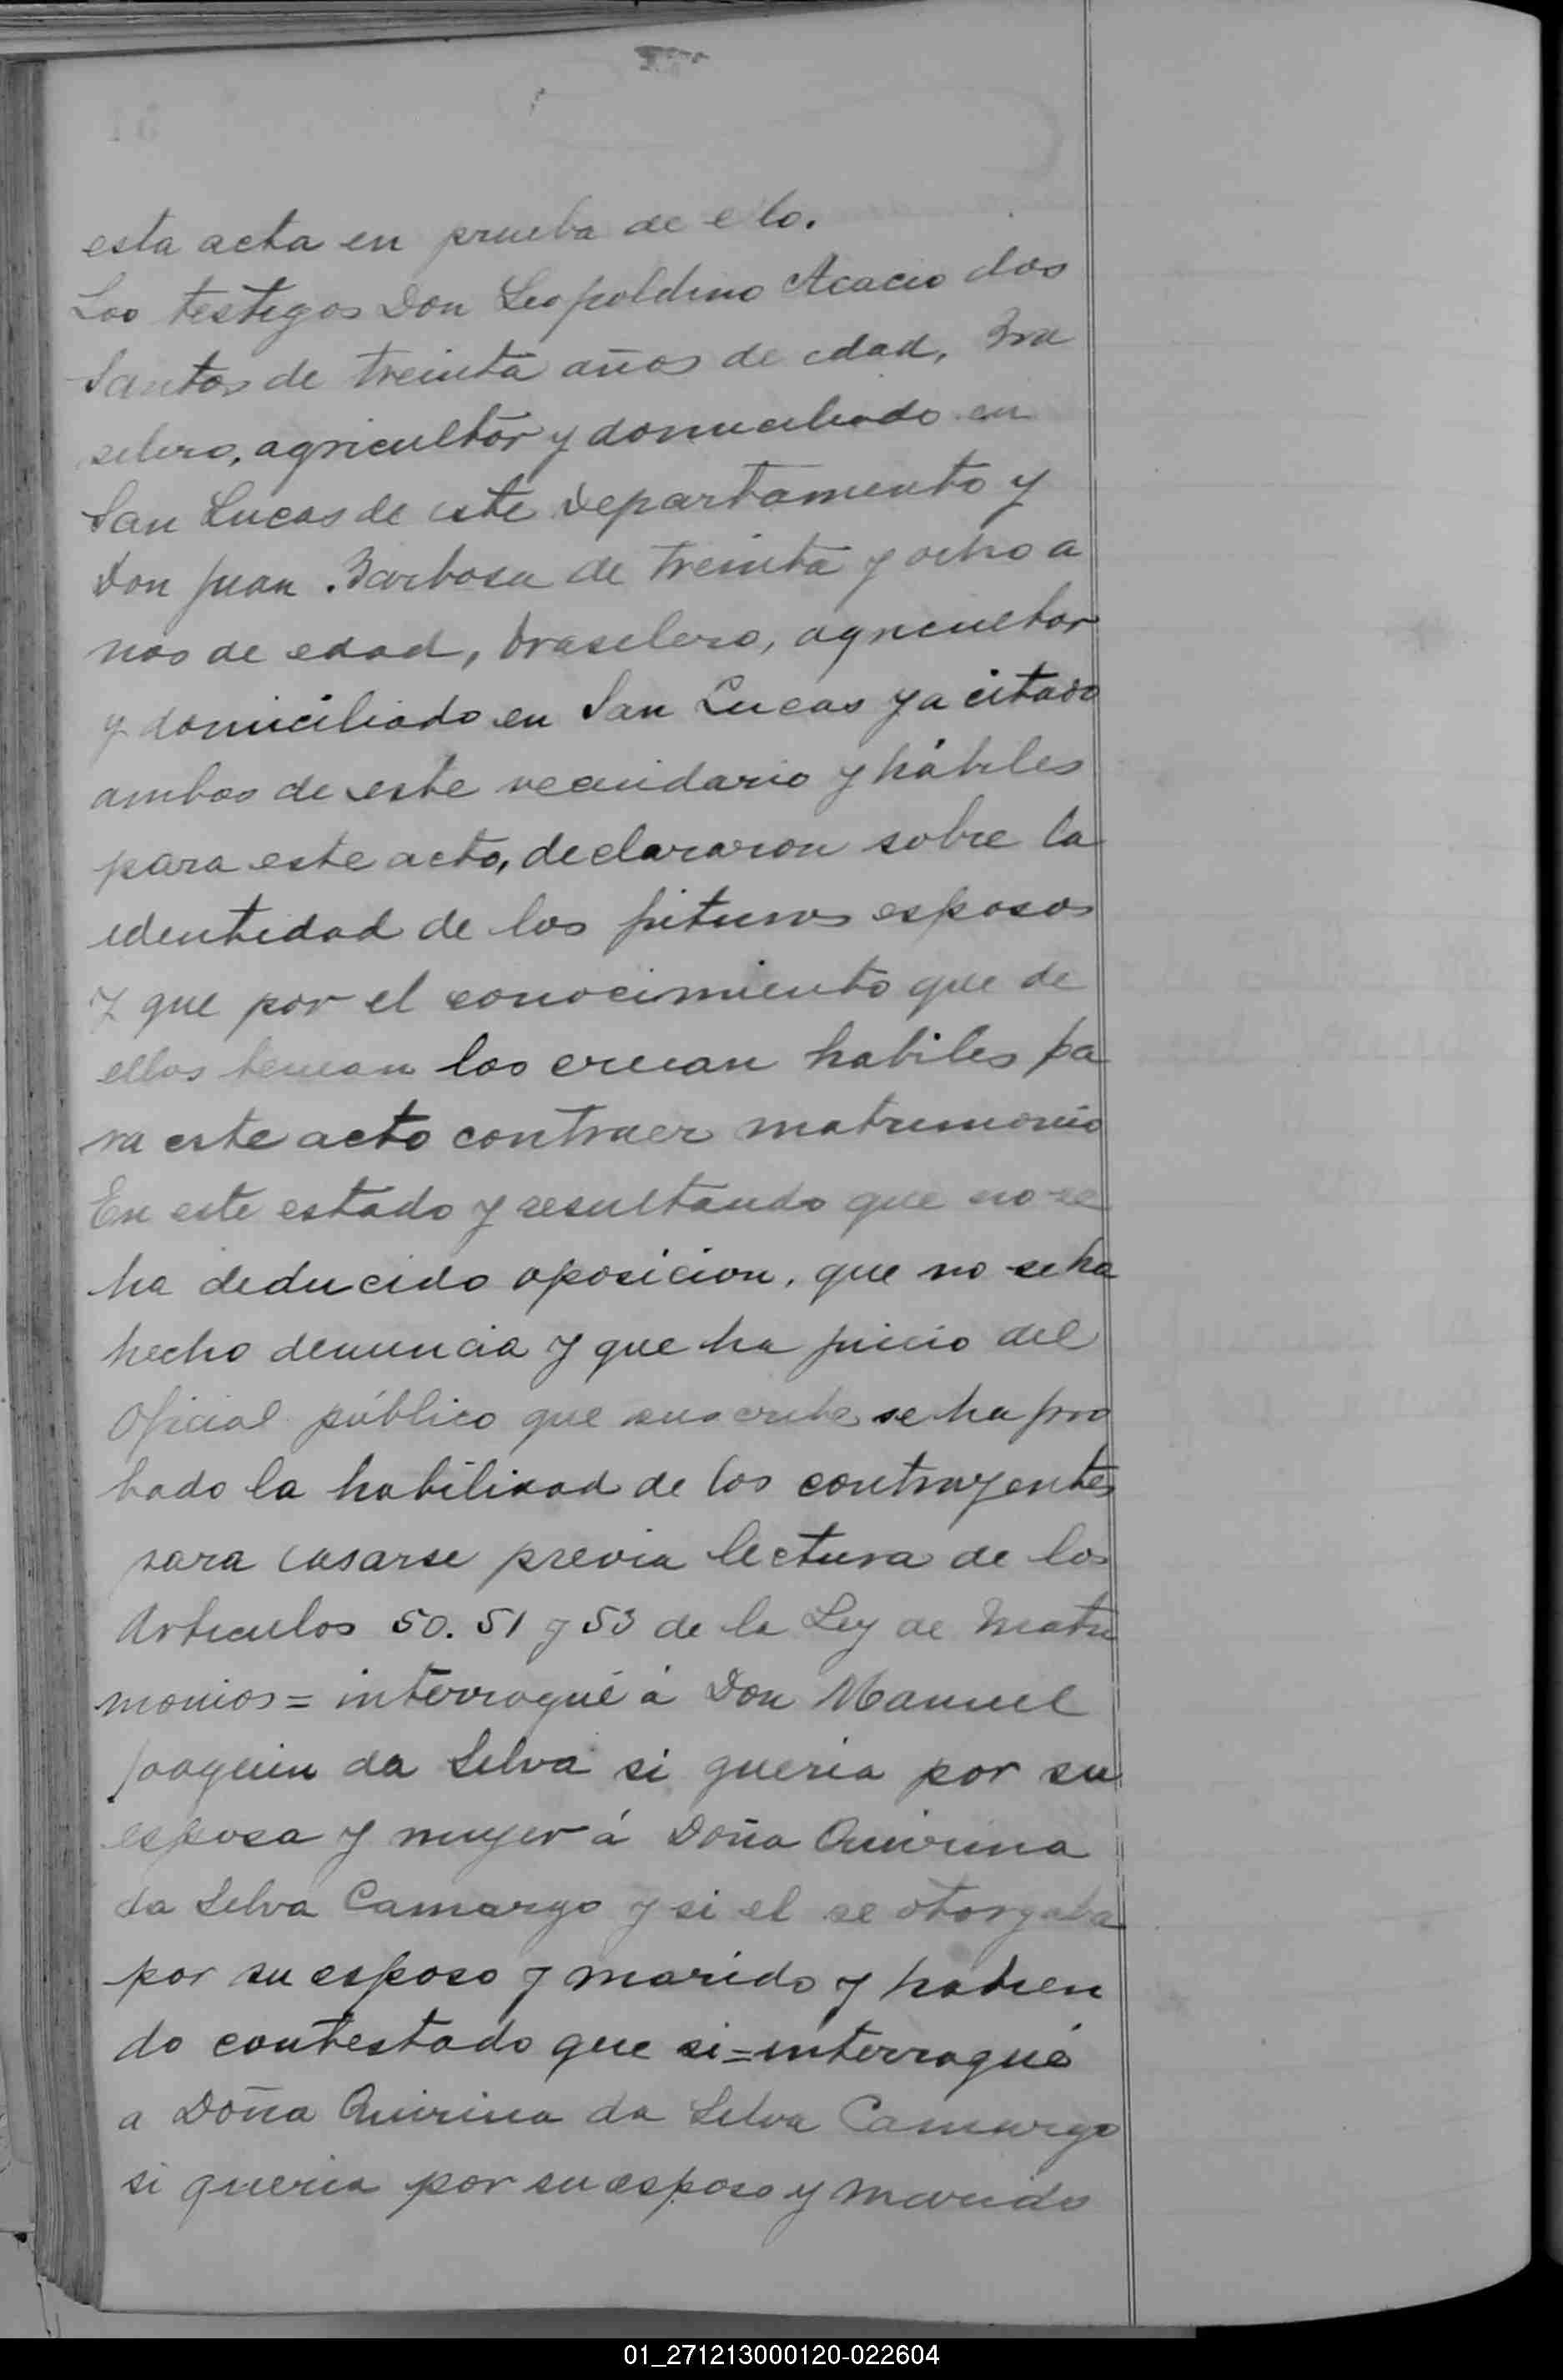 esta acta en prueba de ello.
Los testigos Don Leopoldino Acacio dos
Santos de treinta años de edad, Bra
silero, agricultor y domiciliado en
San Lucas de este Departamento y
Don Juan Barbosa de treinta y ocho a
nos de edad, brasilero, agricultor
y domiciliado en San Lucas ya citado
ambos de este vecindario y hábiles
para este acto, declararon sobre la
identidad de los futuros esposos
Y que por el conocimiento que de
ellos tenian los creian habiles pa
ra este acto contraer matrimonio
En este estado y resultando que no se
ha deducido oposicion, que no se ha
hecho denuncia y que ha juicio del
Oficial público que suscribe se ha pro
bado la habilidad de los contrayentes
para casarse previa lectura de los
Articulos 50. 51 y 53 de la Ley de Matri
monios = interrogué á Don Manuel
Joaquin da Silva si queria por su
esposa y mujer á Doña Quirina
da Silva Camargo y si el se otorgaba
por su esposo y marido y habien
do contestado que si = interrogué
a Doña Quirina da Silva Camargo
si queria por su esposo y marido
01_271213000120-022604